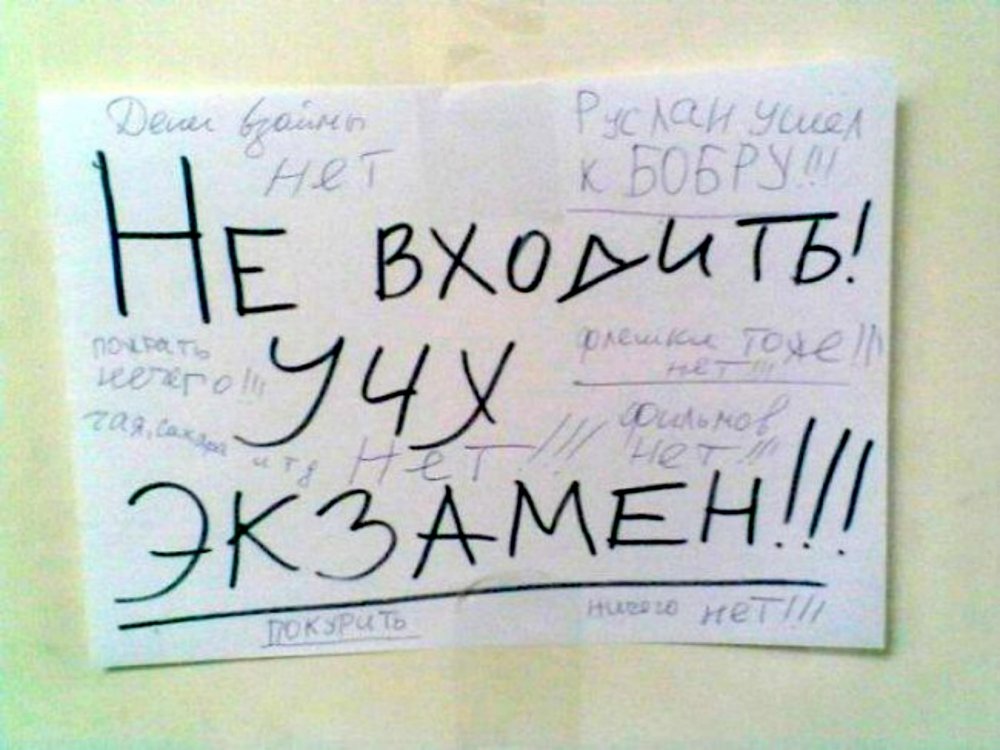 Денег взаймы
нет
Руслан ушел
к БОБРУ!!!
НЕ ВХОДИТЬ!
почитать
нечего!!!
флешки тоже!!!
нет!!!
УЧУ
чая, сахара
и т д НеТ!!!
фильмов
НеТ!!!
ЭКЗАМЕН!!!
ПОКУРИТЬ
ничего НеТ!!!